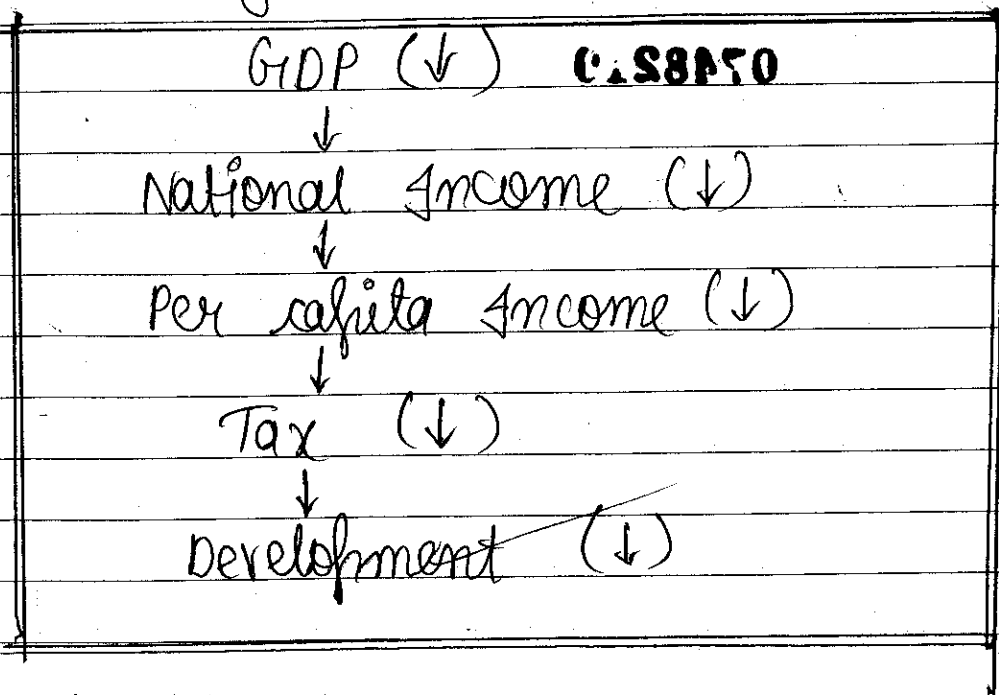 GDP (↓)
↓
National Income (↓)
↓
Per capita Income (↓)
↓
Tax (↓)
↓
Development (↓)